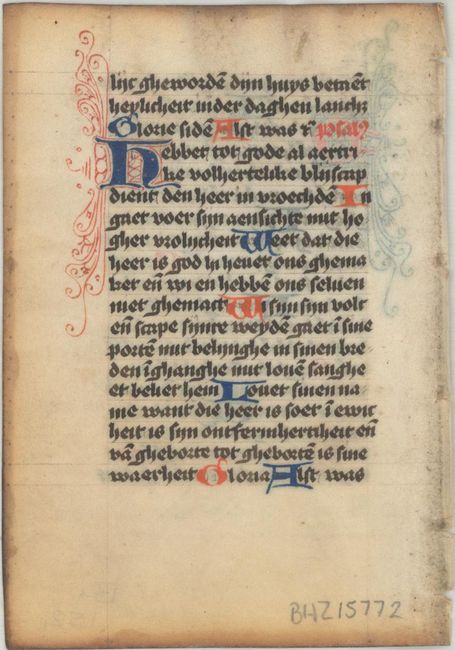 lijc ghewordē dijn huys betaēt
heylicheit inder daghen lancħ
Glorie sidē Alst was r̄ psalꝫ
Hebbet tot gode al aertri
ke volhertelike blijscap
dient den heer in vroechdē In
gaet voer sijn aensichte mit ho
gher vrolijcheit Weet dat die
heer is god hi hevet ons ghema
ket eñ wi en hebbē ons selven
niet ghemact Wi sijn sijn volt
eñ scape sijnre weydē gaet ī sine
portē mit belijnghe in sinen bre
den īghanghe mit lovē sanghe
et beliet hem Lovet sinen na-
me want die heer is soet ī ewic
heit is sijn ontfermhertiheit eñ
vā gheborte tot ghebortē is sine
waerheit Gloria Alst was
BHZ15772